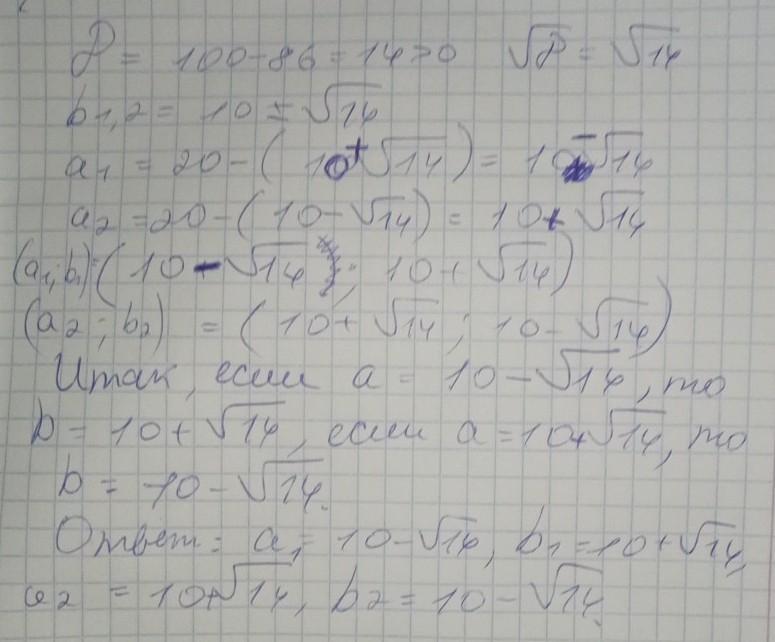 D = 100-86 = 14>0 √D = √14
b1,2 = 10 ± √14
a1 = 20-(10+√14) = 10-√14
a2 = 20-(10-√14) = 10+√14
(a1;b1)=(10-√14; 10+√14)
(a2;b2) = (10+√14; 10-√14)
Итак, если a = 10-√14, то
b = 10+√14, если a = 10+√14, то
b = 10-√14.
Ответ: a1 = 10-√14, b1 = 10+√14,
a2 = 10+√14, b2 = 10-√14.